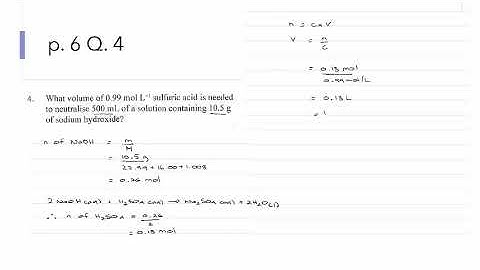 p. 6 Q. 4
4. What volume of 0.99 mol L⁻¹ sulfuric acid is needed
to neutralise 500 mL of a solution containing 10.5 g
of sodium hydroxide?
n of NaOH = m/M
= 10.5 g / 22.99 + 16.00 + 1.008
= 0.26 mol
2NaOH(aq) + H₂SO₄(aq) → Na₂SO₄(aq) + 2H₂O(l)
∴ n of H₂SO₄ = 0.26/2
= 0.13 mol
n = c × V
V = n/c
= 0.13 mol / 0.99 mol/L
= 0.13 L
= 1